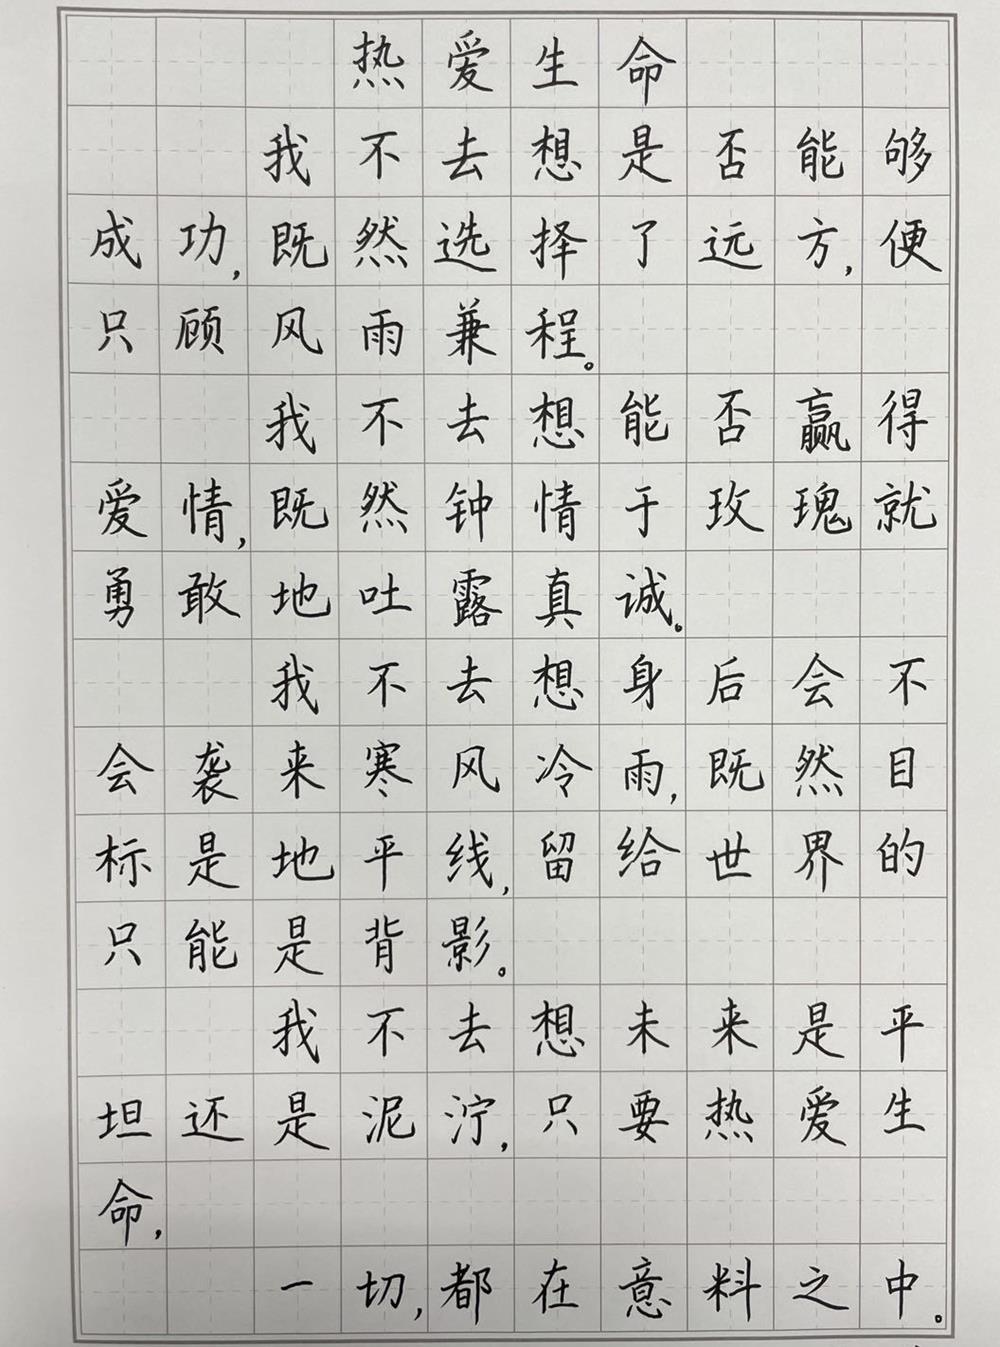 热爱生命
我不去想是否能够
成功,既然选择了远方,便
只顾风雨兼程。
我不去想能否赢得
爱情,既然钟情于玫瑰就
勇敢地吐露真诚。
我不去想身后会不
会袭来寒风冷雨,既然目
标是地平线,留给世界的
只能是背影。
我不去想未来是平
坦还是泥泞,只要热爱生
命,
一切,都在意料之中。